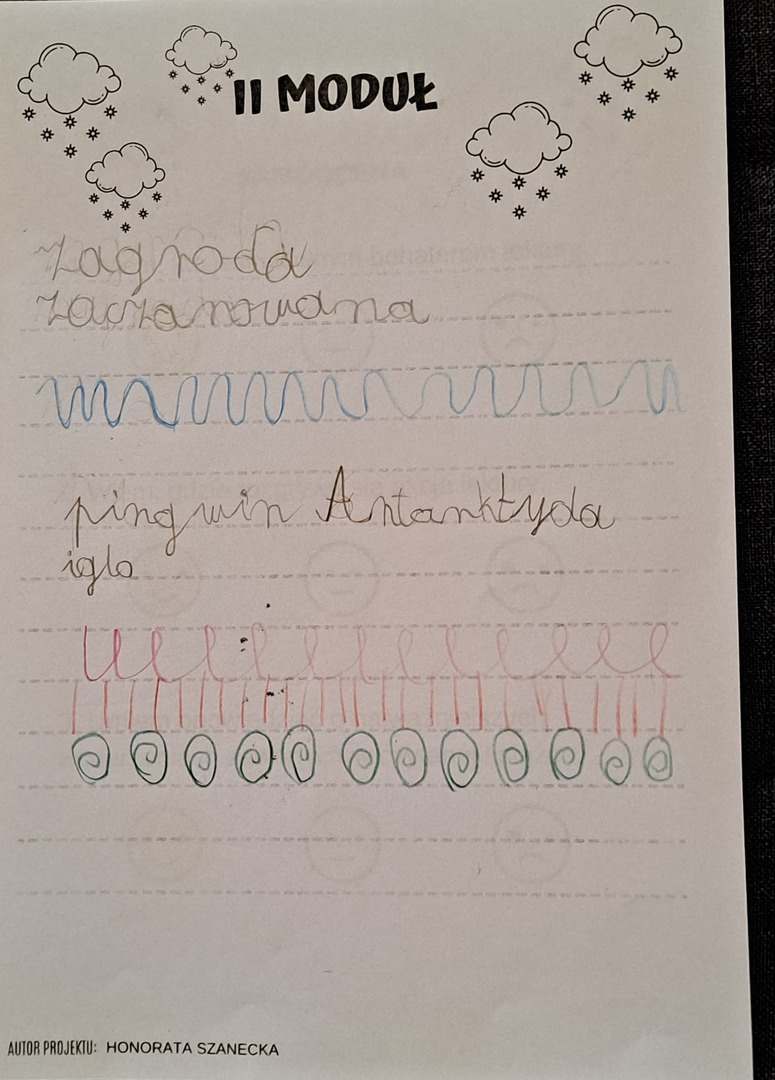 II MODUŁ
zagroda
zaczarowana
pingwin Antanktyda
iglo
AUTOR PROJEKTU: HONORATA SZANECKA